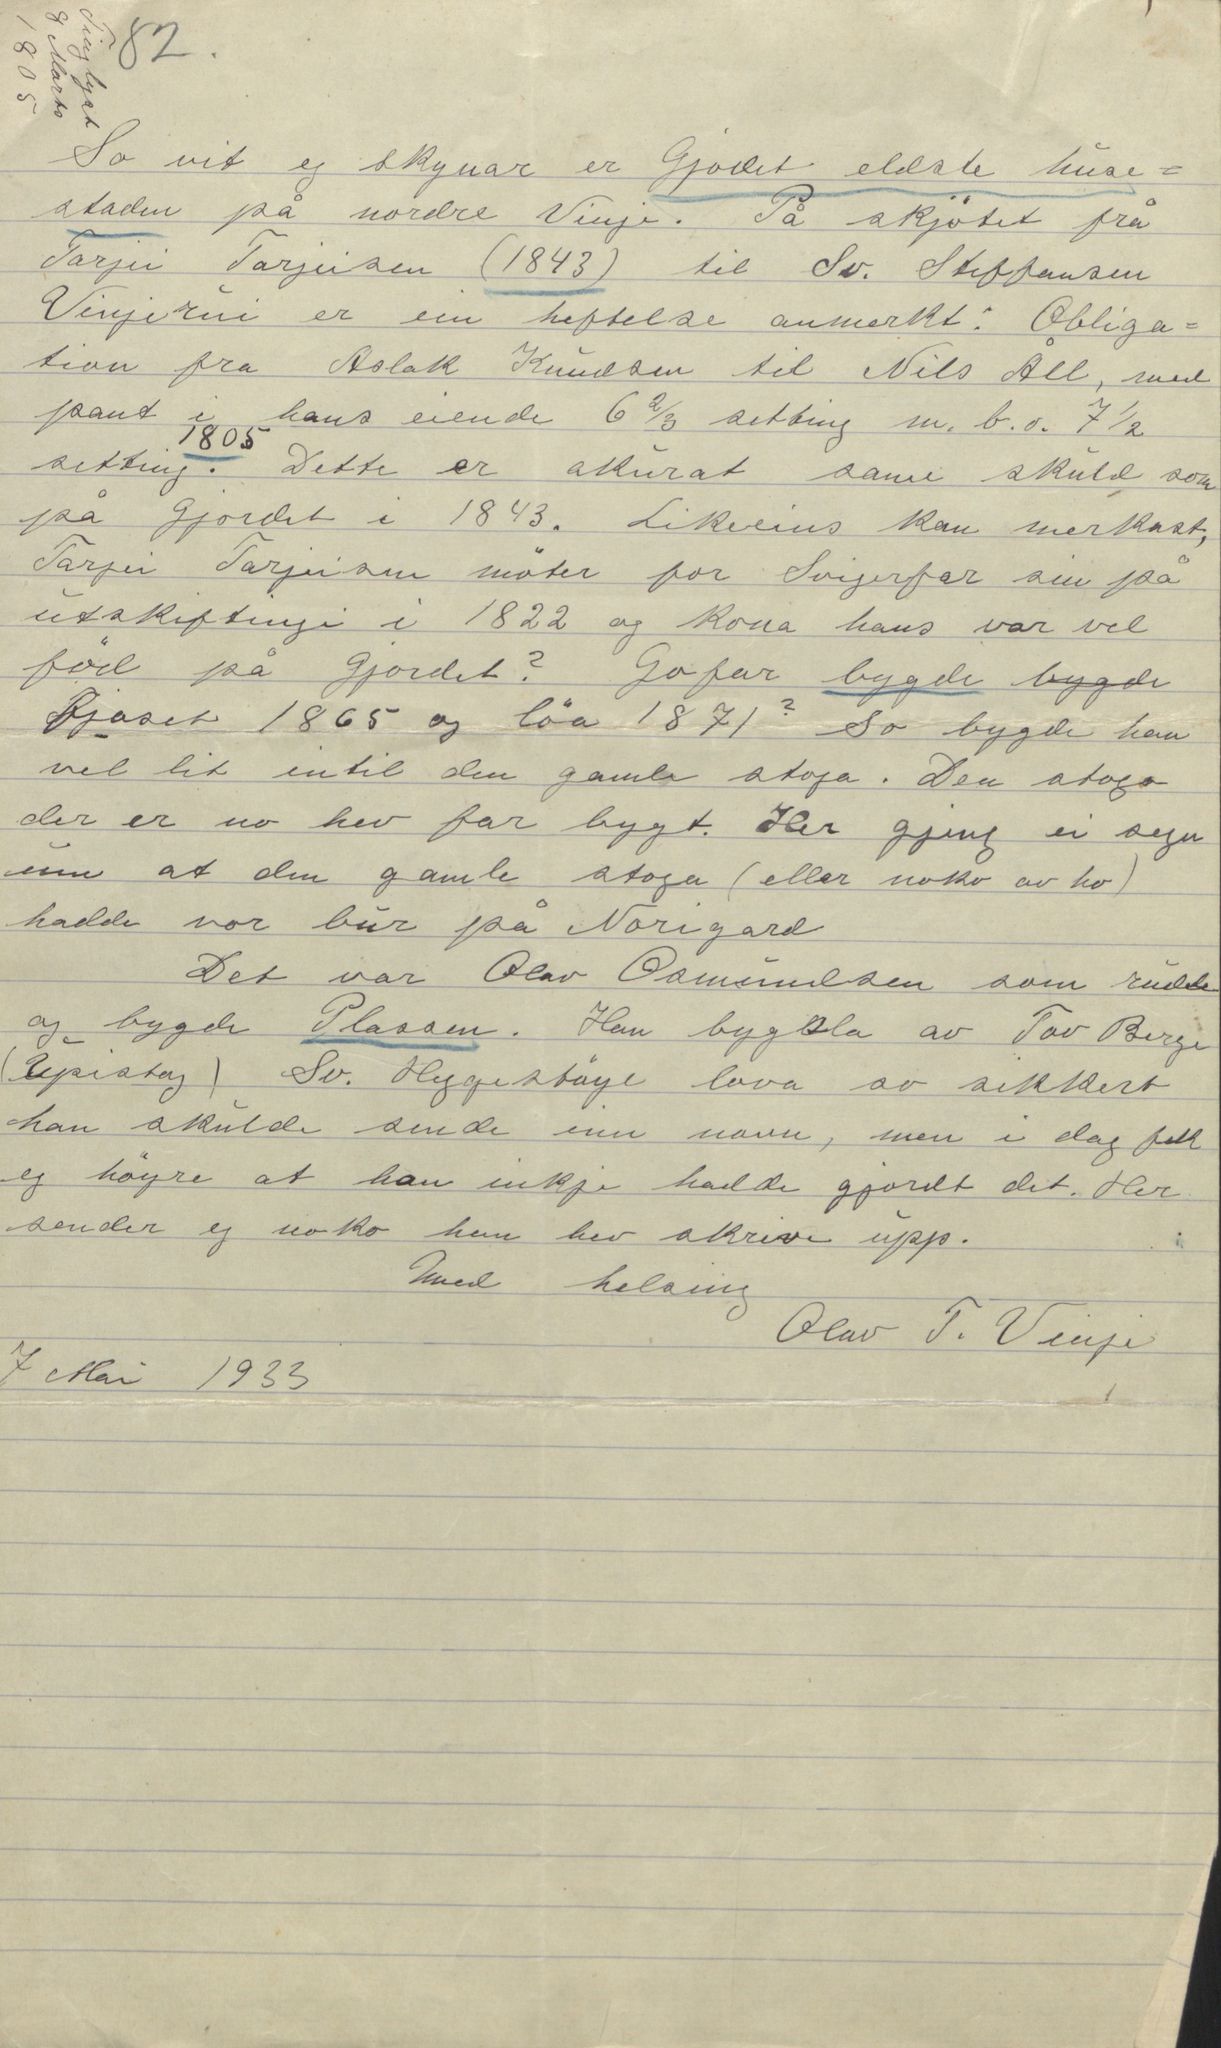 82.
Tinglyst
8 Marts
1805
So vit eg skynar er Gjødet eldste huse=
staden på nordre Vinje. På skjøtet frå
Tarjei Tarjeisen (1843) til Sv. Steffansen
Vinjerui er ein heftelse anmerkt: Obliga=
tion fra Aslak Knudsen til Nils Åll, med
pant i hans eiende 6 2/3 setting m. b. o. 7 1/2
setting. 1805 Dette er akurat same skuld som
på Gjordet i 1843. Likeeins kan merkast,
Tarjei Tarjeisen möter for Svigerfar sin på
utskiftingi i 1822 og kona hans var vel
föd på Gjordet? Gofar bygde bygde
Fjoset 1865 og löa 1871? So bygde han
vel lit intil den gamle stoga. Den stogo
der er no hev far bygt. Her gjeng ei segn
um at den gamle stoga (eller noko av ho)
hadde vor bur på Norigard
Det var Olav Osmundsen som rudde
og bygde Plassen. Han bygsla av Tov Berge
(Upistog) Sv. Heggestöyl lova so sikkert
han skulde sende inn navn, men i dag fekk
eg höyre at han inkje hadde gjordt det. Her
sender eg noko han hev skrive upp.
Med helsing
Olav T. Vinje
7 Mai 1933